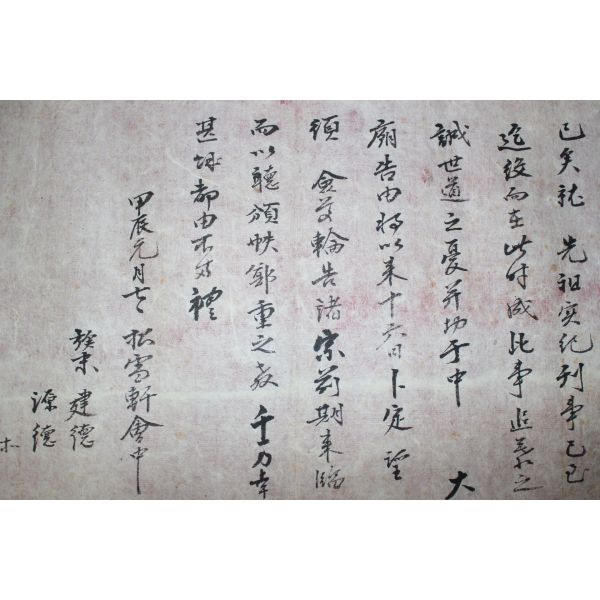 已矣就 先祖實紀刊事已至
近後向在此付成此事追慕之
誠世道之憂葬切于中 大
廟告由將以來十六日卜定望
須 僉尊輪告諸宗前期來臨
而以聽頒帙鄭重之教千万幸
甚餘都由不時禮
甲辰元月七 松雪軒會中
族末 建德
源德